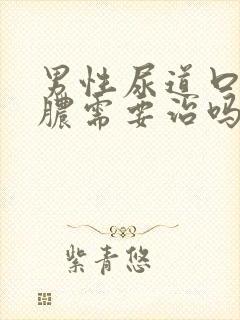 男性尿道口
膿需要治吗
紫青悠